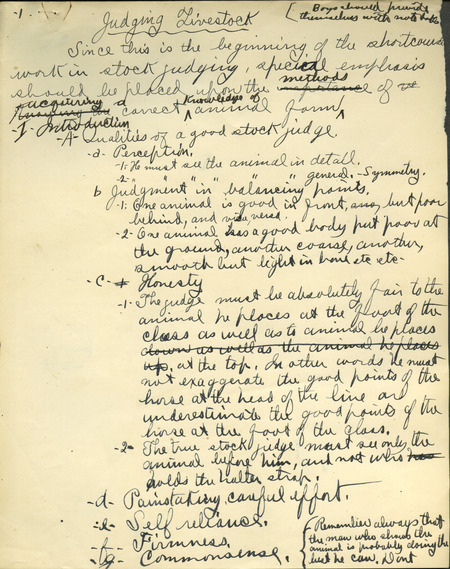 -1-
Judging Livestock
Boys should provide
themselves with note books
Since this is the beginning of the shortcourse
work in stock judging, special emphasis
should be placed upon the methods of
acquiring a correct knowledge of animal form
-I- Introduction
-A- Qualities of a good stock judge
-a- Perception.
-1- He must see the animal in detail.
-2- " " " " " " general. - Symmetry.
b Judgment in balancing points.
-1- One animal is good in front, ans, but poor
behind, and vice versa.
-2- One animal has a good body put poor at
the ground, another coarse, another,
smooth but light in bone etc etc-
-c- Honesty
-1- The judge must be absolutely fair to the
animal he places at the foot of the
class as well as to animal he places
down as well as the animal he places
up. at the top. In other words he must
not exaggerate the good points of the
horse at the head of the line and
underestimate the good points of the
horse at the foot of the class.
-2- The true stock judge must see only the
animal before him, and not who has
holds the halter strap.
-d- Painstaking, careful effort.
-e- Self reliance.
-f- Firmness.
-g- Commonsense.
Remember always that
the man who shows the
animal is probably doing the
best he can. Dont